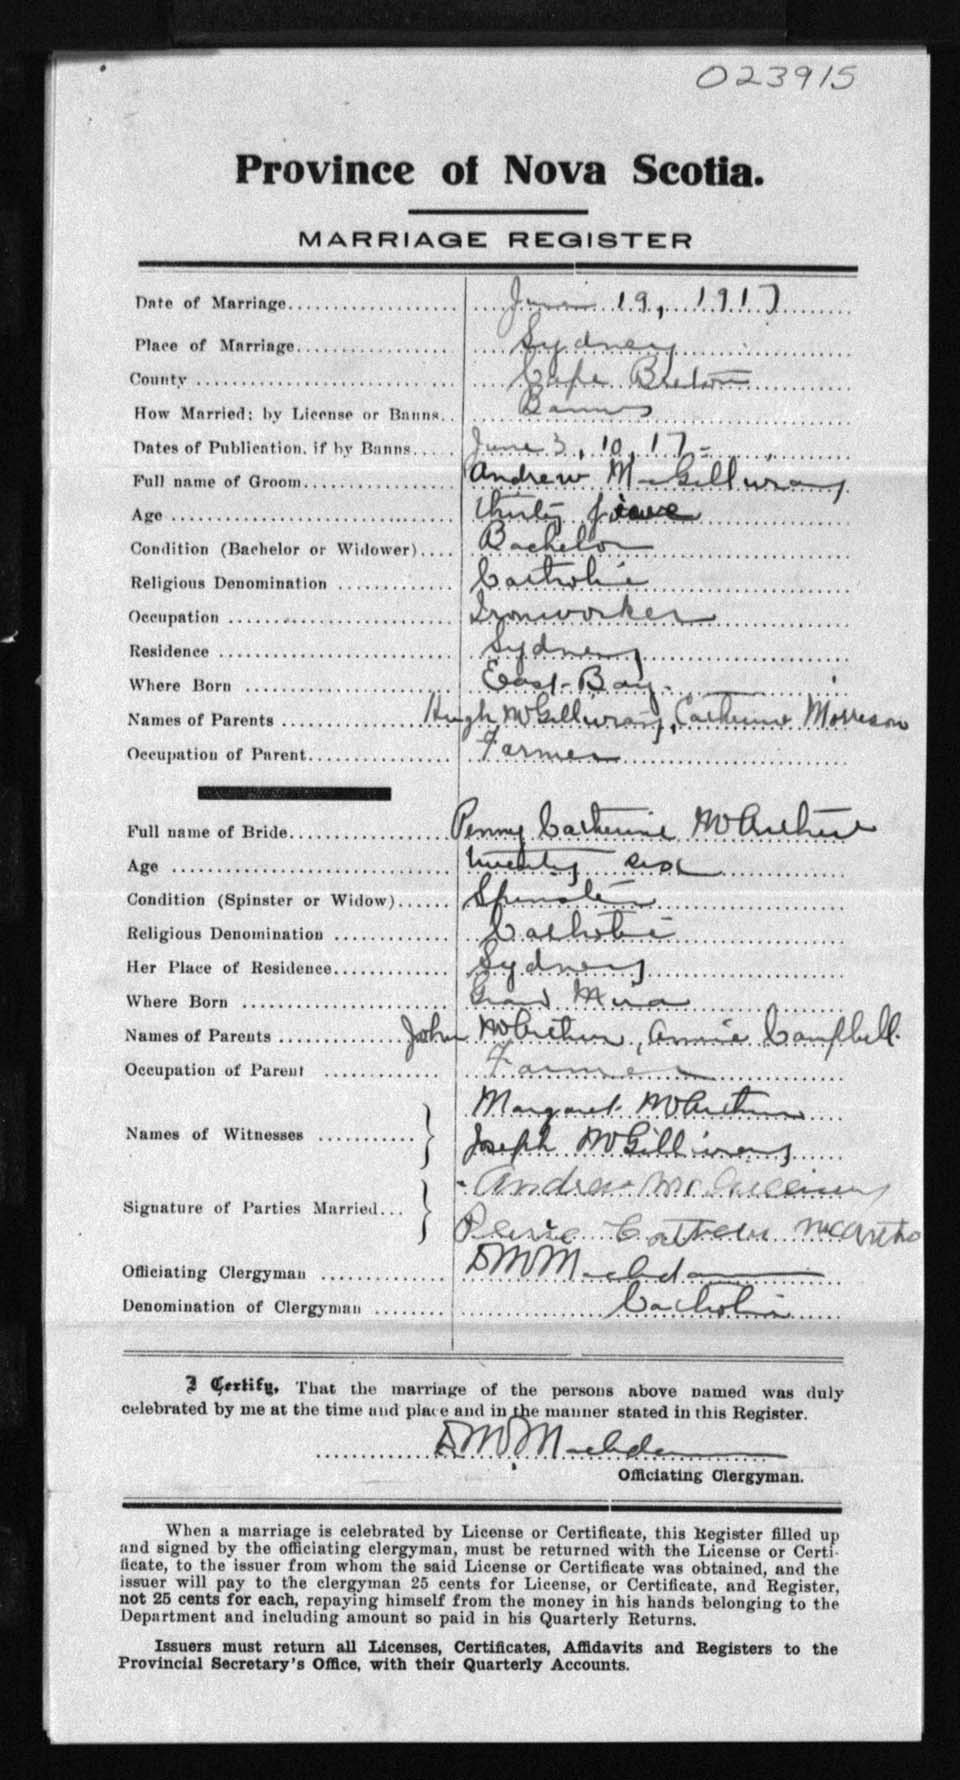 023915
Province of Nova Scotia.
MARRIAGE REGISTER
Date of Marriage.................... June 19, 1917
Place of Marriage................... Sydney
County .............................. Cape Breton
How Married; by License or Banns.. Banns
Dates of Publication, if by Banns..... June 3, 10, 17-
Full name of Groom.................. Andrew McGillivray
Age .................................. thirty five
Condition (Bachelor or Widower).... Bachelor
Religious Denomination ............. Catholic
Occupation .......................... Ironworker
Residence ........................... Sydney
Where Born ........................ East Bay.
Names of Parents ................... Hugh McGillivray, Catherine Morrison
Occupation of Parent................ Farmer
Full name of Bride................... Penny Catherine McArthur
Age .................................. twenty six
Condition (Spinster or Widow)...... Spinster
Religious Denomination ............. Catholic
Her Place of Residence............. Sydney
Where Born ........................ Grand Mira
Names of Parents .............. John McArthur, Annie Campbell.
Occupation of Parent ............. Farmer
Margaret McArthur
Names of Witnesses ........... }
Joseph McGillivray
Andrew McGillivray
Signature of Parties Married... }
Catherine McArthur
Officiating Clergyman ............. D M
Denomination of Clergyman ........ Catholic
I Certify, That the marriage of the persons above named was duly
celebrated by me at the time and place and in the manner stated in this Register.
D M
Officiating Clergyman.
When a marriage is celebrated by License or Certificate, this Register filled up
and signed by the officiating clergyman, must be returned with the License or Certi-
ficate, to the issuer from whom the said License or Certificate was obtained, and the
issuer will pay to the clergyman 25 cents for License, or Certificate, and Register,
not 25 cents for each, repaying himself from the money in his hands belonging to the
Department and including amount so paid in his Quarterly Returns.
Issuers must return all Licenses, Certificates, Affidavits and Registers to the
Provincial Secretary's Office, with their Quarterly Accounts.